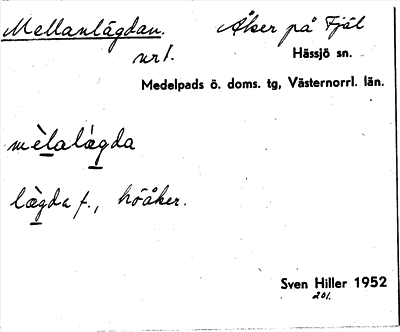 Mellanlägdan. Åker på Fjäl
nr 1. Hässjö sn.
Medelpads ö. doms. tg, Västernorrl. län.
mèlalægda
lægda f., höåker.
Sven Hiller 1952
201.